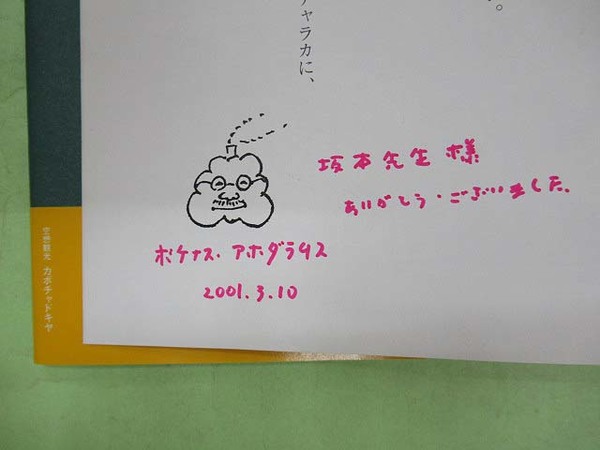 。
チャラカに、
坂本先生様
ありがとう・ございました。
ボケナス・アホダラクス
2001.3.10
空想観光 カボチャドキヤ